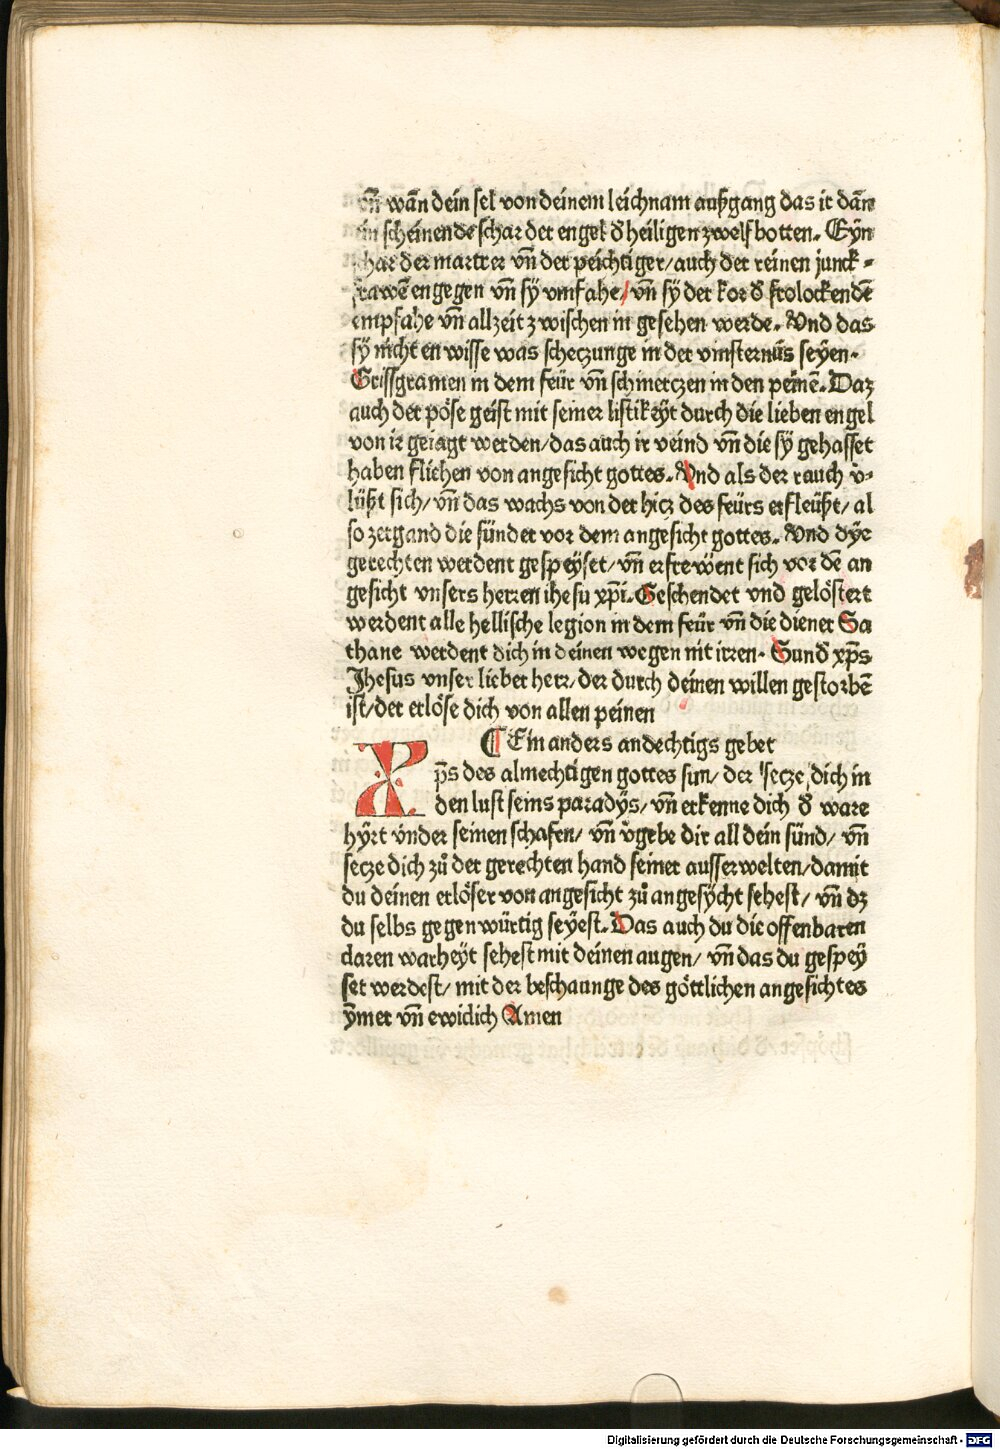 vn̄ wān dein sel von deinem leichnam außgang das ir dān
ein scheinende schar der engel ď heiligen zwelf botten. Eyn
schar der martrer vn̄ der peichtiger/auch der reinen junck⸗
frawē engegen vn̄ sÿ vmfahe/ vn̄ sÿ der kor ď frolockendē
empfahe vn̄ allzeit zwischen in gesehen werde. Vnd das
sÿ nicht en wisse was scheczunge in der vinsternüs seyen.
Grissgramen in dem feür vn̄ schmerczen in den peinē. Daz
auch der pöse geist mit seiner listikeyt durch die lieben engel
von ir geiagt werden/das auch ir veind vn̄ die sÿ gehasset
haben fliehen von angesicht gottes. Vnd als der rauch v̓⸗
lüßt sich/ vn̄ das wachs von der hicz des feürs erfleüßt/ al
so zergand die sünder vor dem angesicht gottes. Vnd dye
gerechten werdent gespeyset/ vn̄ erfrewent sich vor dē an
gesicht vnsers herren ihesu xp̄i. Geschendet vnd gelöstert
werdent alle hellische legion in dem feür vn̄ die diener Sa
thane werdent dich in deinen wegen nit irren. Sunď xp̄s
Jhesus vnser lieber herr/der durch deinen willen gestorbē
ist/der erlöse dich von allen peinen
¶ Ein anders andechtigs gebet
Xp̄s des almechtigen gottes sun/ der secze dich in
den lust seins paradÿs/ vn̄ erkenne dich ď ware
hÿrt vnder seinen schafen/ vn̄ v̓gebe dir all dein sünd/ vn̄
secze dich zů der gerechten hand seiner ausserwelten/damit
du deinen erlöser von angesicht zů angesÿcht sehest/ vn̄ dz
du selbs gegenwürtig seyest. Das auch du die offenbaren
claren warheyt sehest mit deinen augen/ vn̄ das du gespey
set werdest/ mit der beschaunge des göttlichen angesichtes
ÿmer vn̄ ewiclich Amen
Digitalisierung gefördert durch die Deutsche Forschungsgemeinschaft - DFG